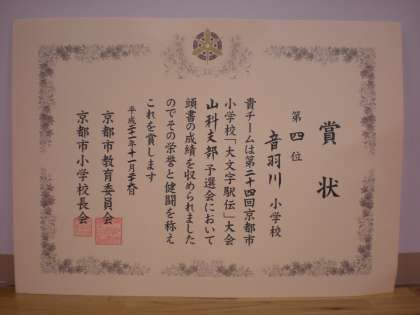 賞状
第四位
音羽川小学校
貴チームは第二十四回京都市
小学校「大文字駅伝」大会
山科支部予選会において
頭書の成績を収められました
のでその栄誉と健闘を称え
これを賞します
平成二十一年十一月二十六日
京都市教育委員会
京都市小学校長会